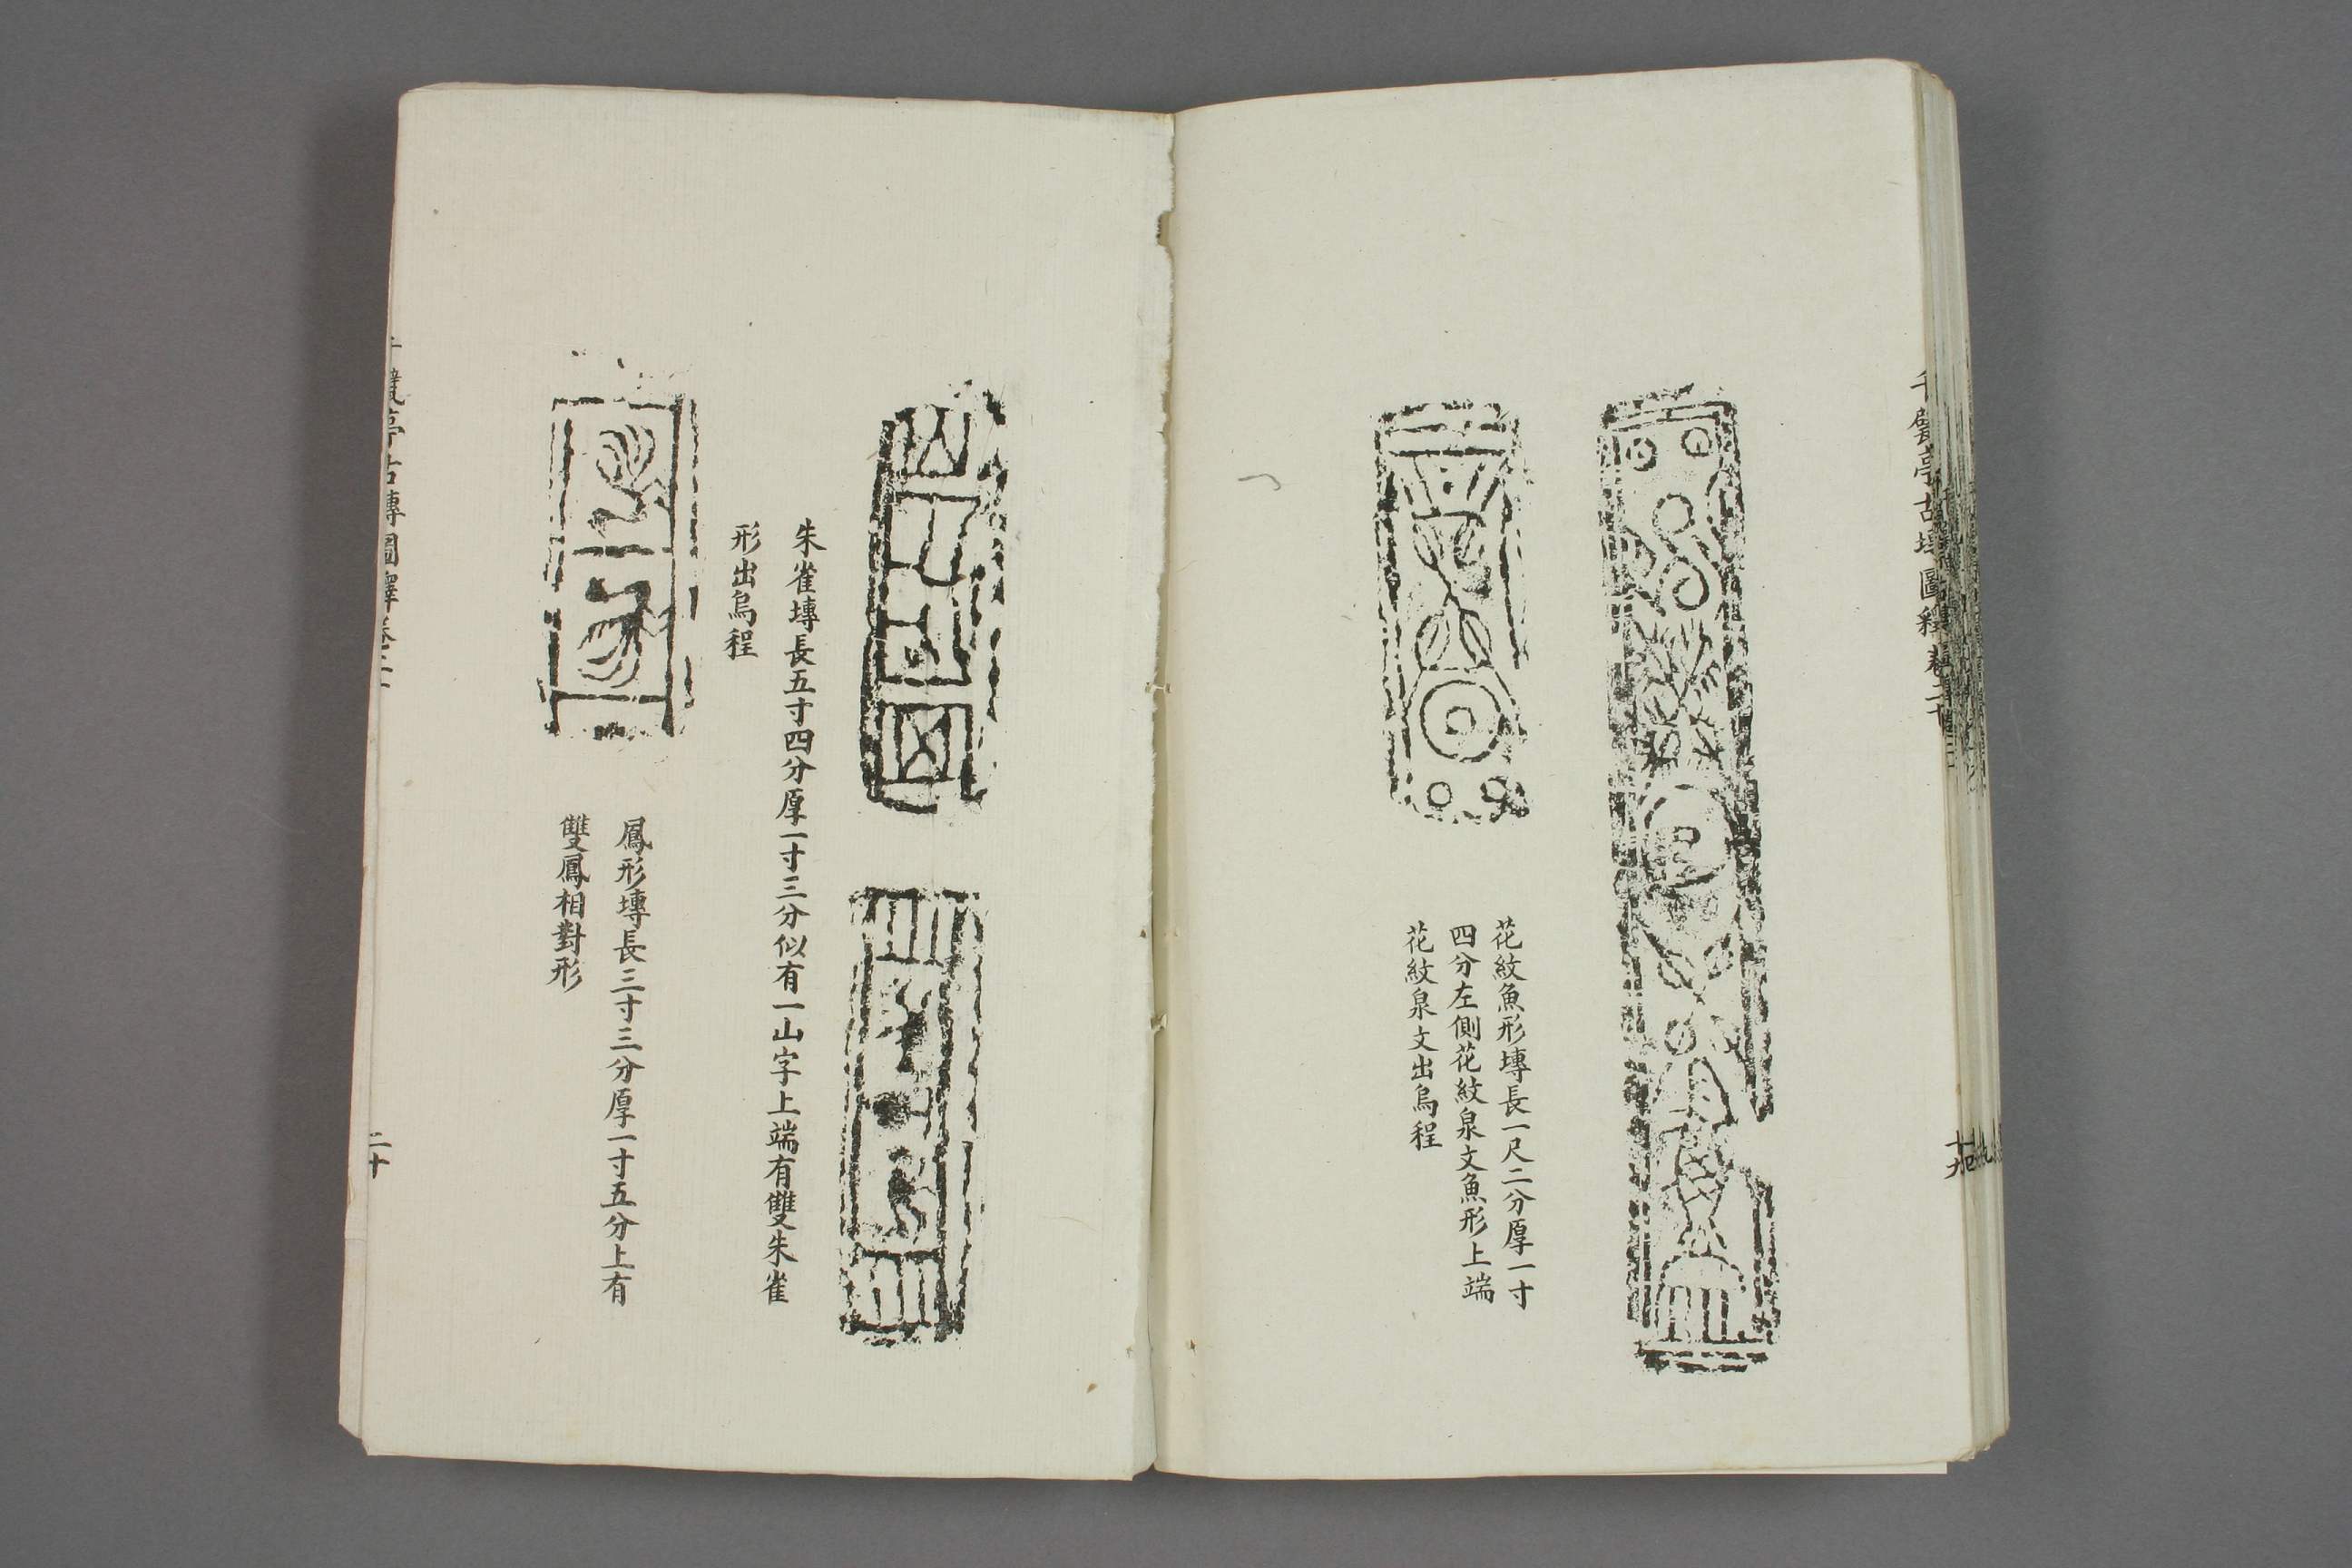 千甓亭古塼圖釋卷二十
十九
花紋魚形塼長一尺二分厚一寸
四分左側花紋泉文魚形上端
花紋泉文出烏程
朱雀塼長五寸四分厚一寸三分似有一山字上端有雙朱雀
形出烏程
鳳形塼長三寸三分厚一寸五分上有
雙鳳相對形
甓亭古塼圖釋卷二十
二十